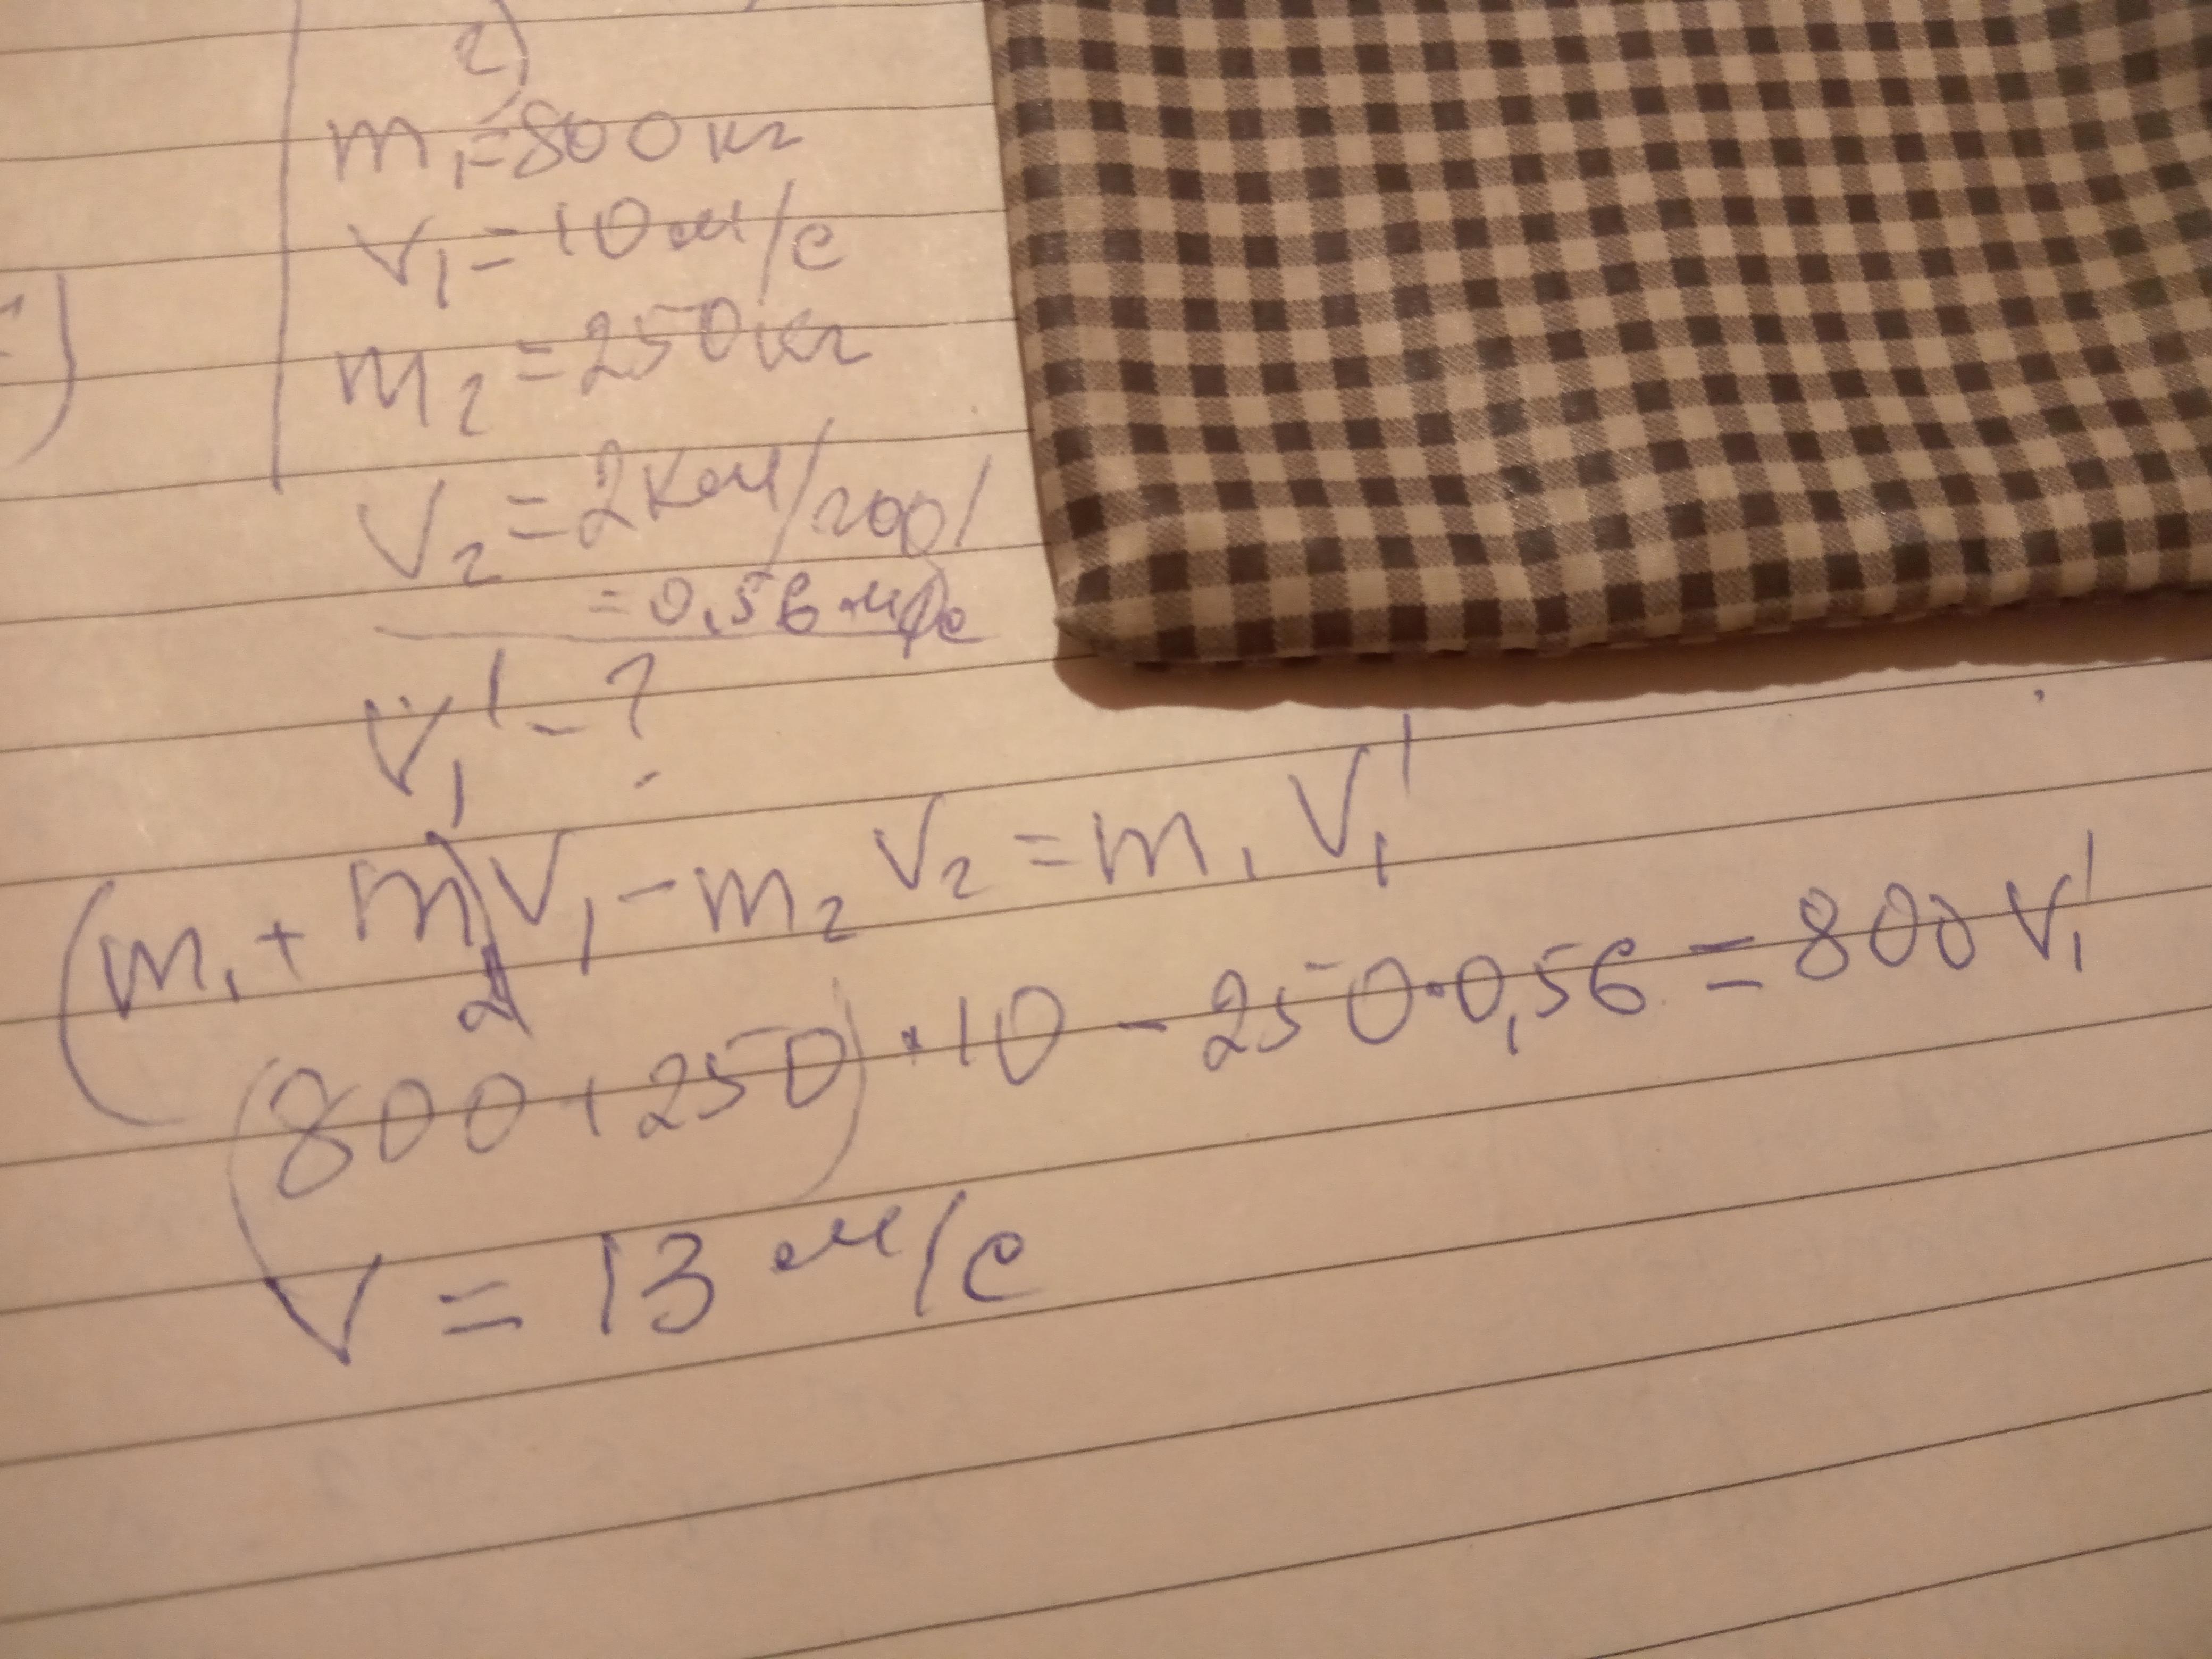 2)
m₁=800кг
V₁=10м/с
m₂=250кг
V₂=2км/год
=0,56 м/с
V₁'-?
(m₁+m₂)V₁-m₂V₂=m₁V₁'
(800+250)·10-250·0,56=800V₁'
V=13м/с